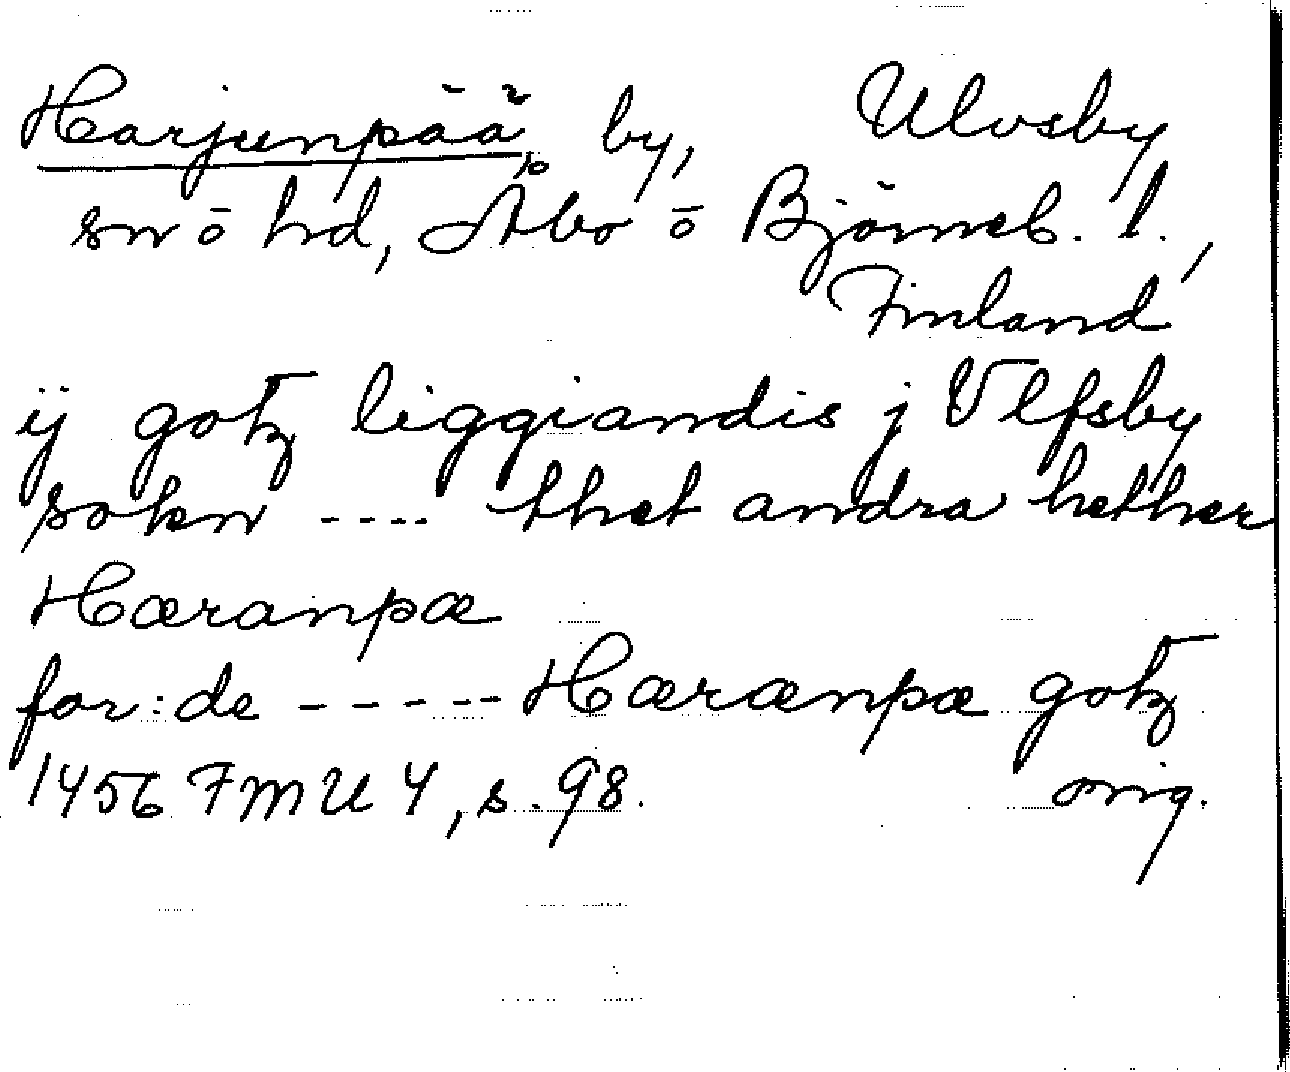 Harjunpää, by, Ulvsby
sn ō hd, Åbo ō Björneb. l.,
Finland
ij gotz liggiandis j Vlfsby
sokn ---- thet andra hether
Hæranpæ
for:de ----- Hæranpæ gotz
1456 FMU 4, s. 98. orig.